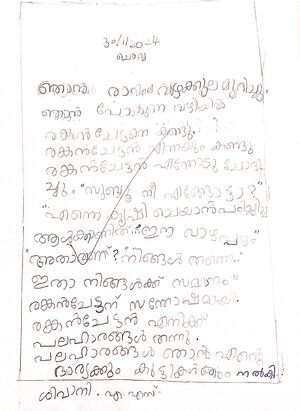 30/1/2024
ചൊവ്വ
ഞാൻ രാവിലെ വാഴക്കുല മുറിച്ചു.
ഞാൻ പോകുന്ന വഴിയിൽ
രങ്കൻ ചേട്ടനെ കണ്ടു.
രങ്കൻചേട്ടൻ എന്നെയും കണ്ടു
രങ്കൻചേട്ടൻ എന്നോടു ചോദി
ച്ചു. "സുബ്ബു നീ എങ്ങോട്ടാ?"
"എന്നെ കൃഷി ചെയാൻ പഠിപ്പിച്ച
ആൾക്കാണിത് ഈ വാഴപ്പഴം"
"അതാരാണ്? "നിങ്ങൾ തന്നെ."
ഇതാ നിങ്ങൾക്ക് സമ്മാനം"
രങ്കൻചേട്ടന് സന്തോഷമായി.
രങ്കൻചേട്ടൻ എനിക്ക്
പലഹാരങ്ങൾ തന്നു.
പലഹാരങ്ങൾ ഞാൻ എന്റെ
ഭാര്യക്കും കുട്ടികൾക്കും നൽകി
ശിവാനി. എ എസ്